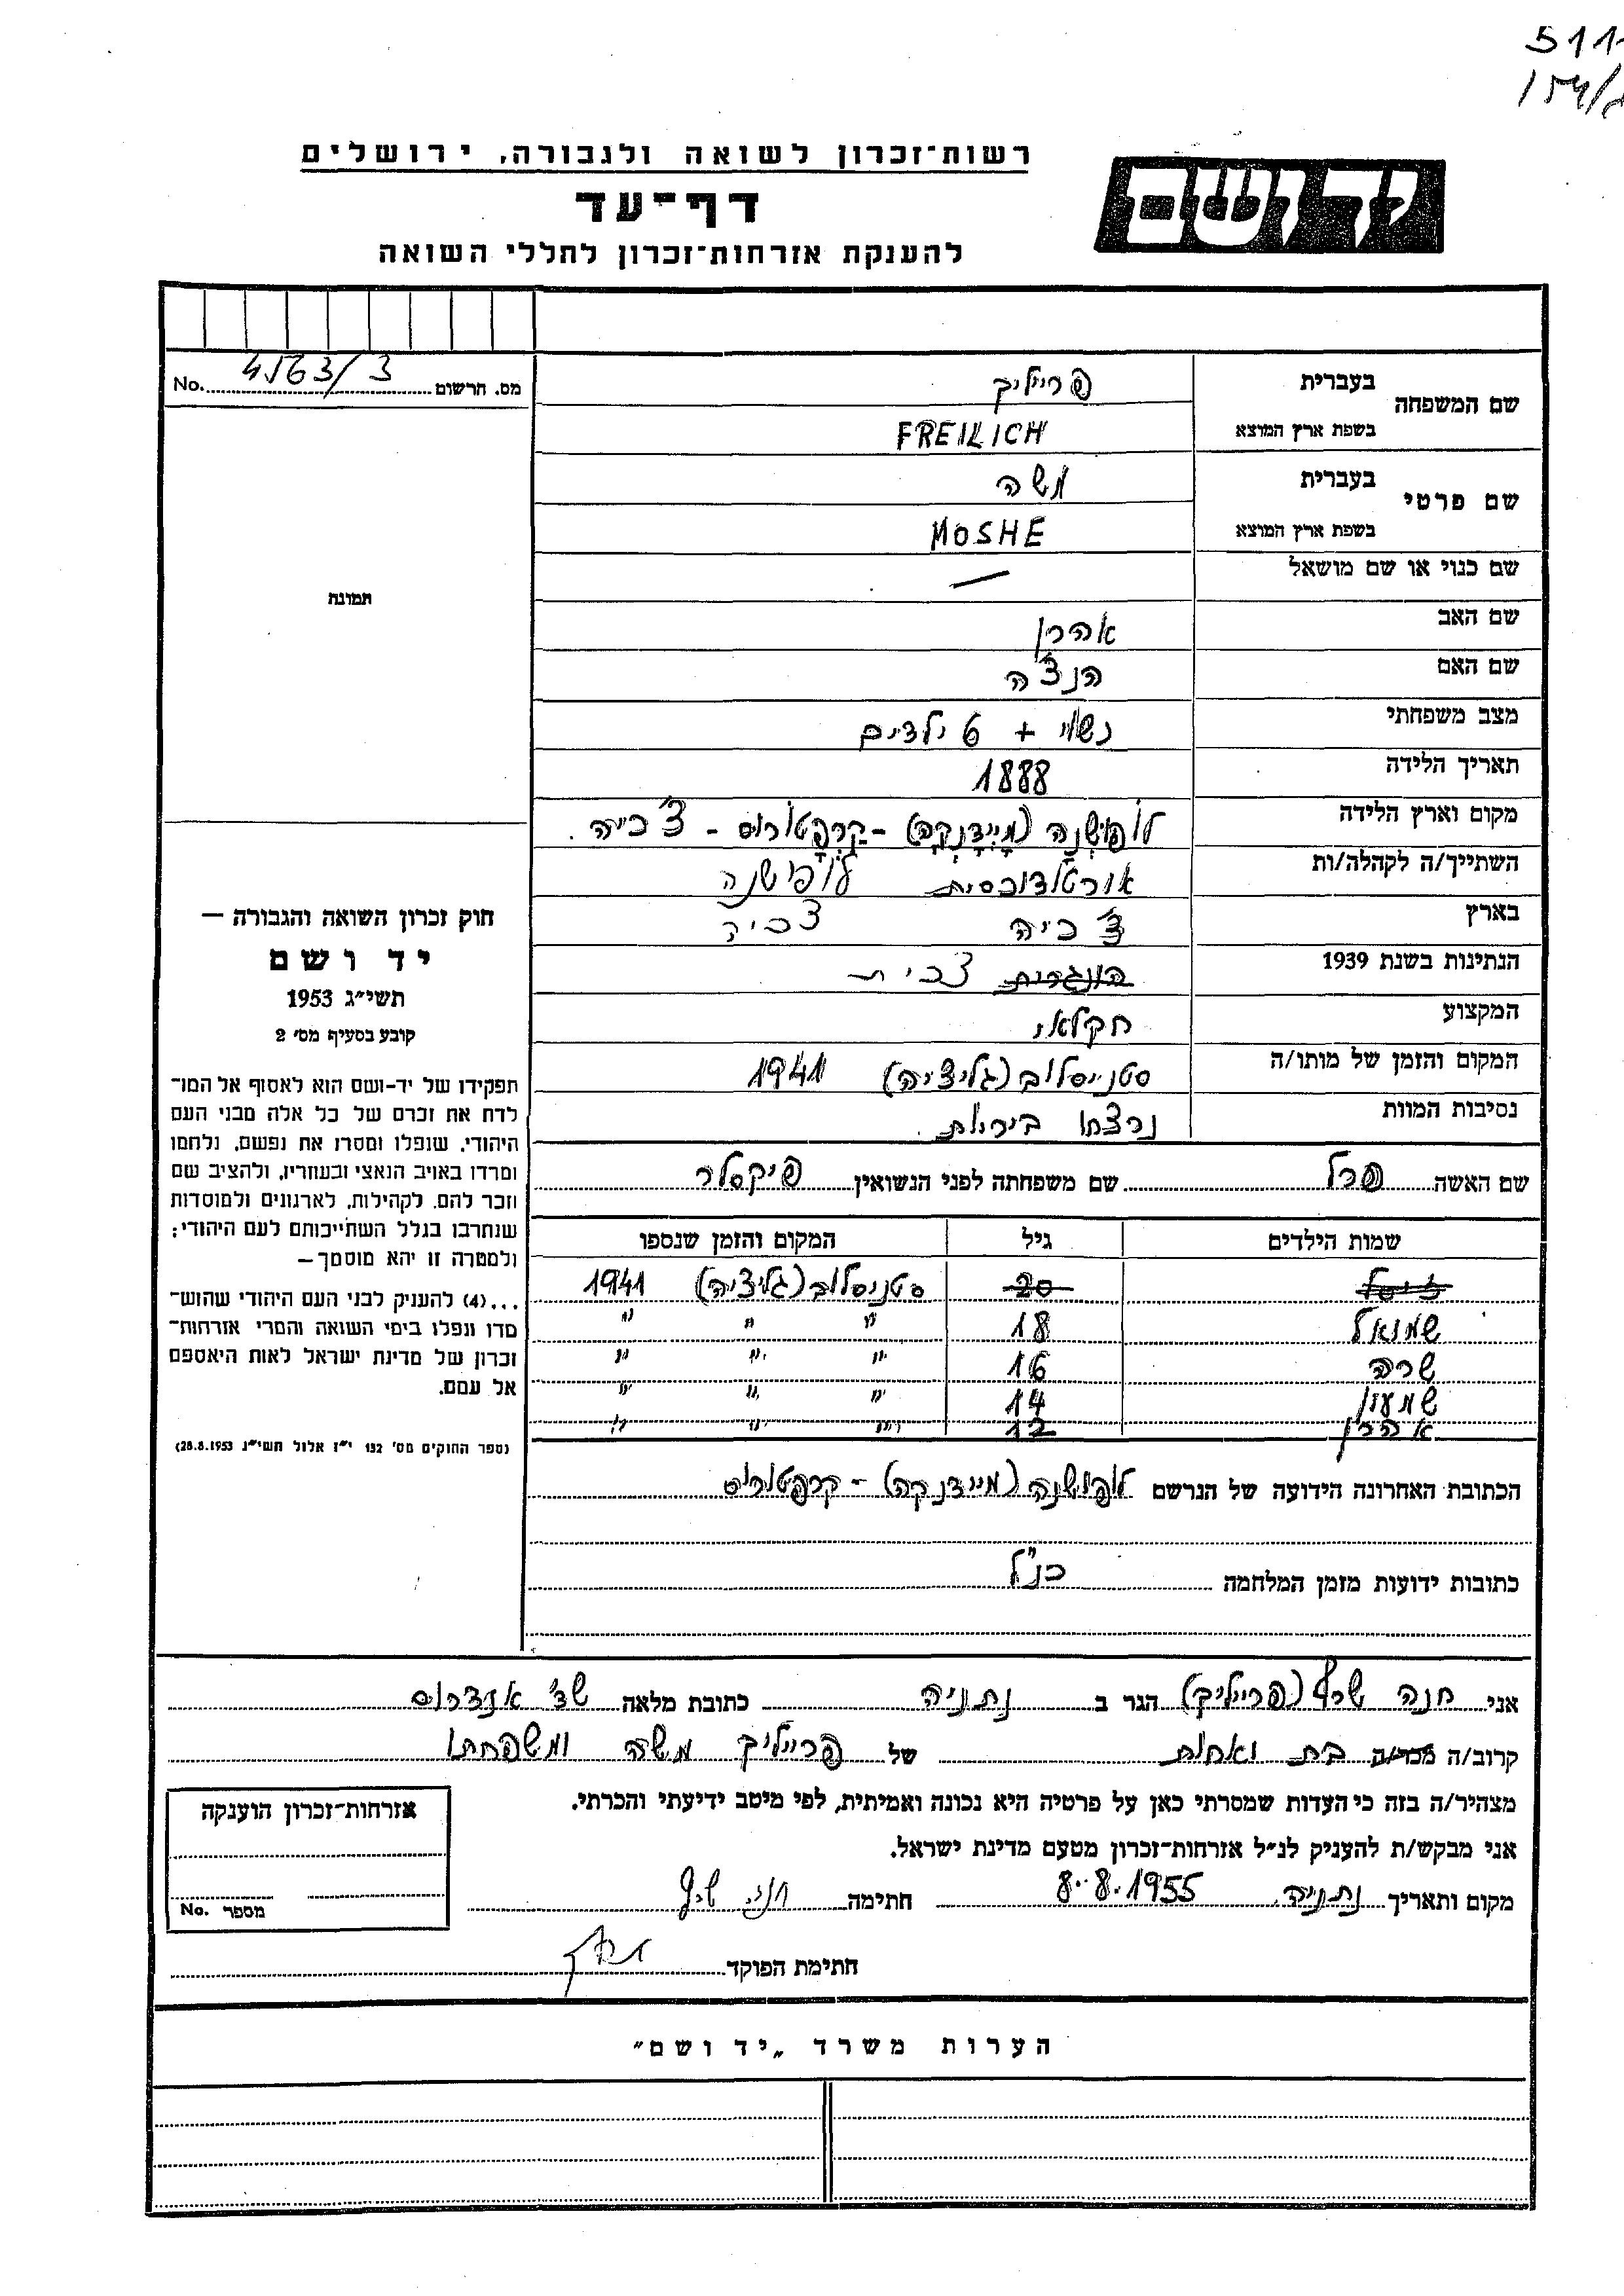 5111
154/
רשות־זכרון לשואה ולגבורה, ירושלים
דף־עד
להענקת אזרחות־זכרון לחללי השואה
יד ושם
מס. הרשום 4563/3 No.
שם המשפחה
בעברית פרייליך
בשפת ארץ המוצא FREILICH
שם פרטי
בעברית משה
בשפת ארץ המוצא MOSHE
שם כנוי או שם מושאל —
שם האב אהרן
שם האם הנצ'ה
מצב משפחתי נשוי + 6 ילדים
תאריך הלידה 1888
מקום וארץ הלידה לוֹפּוּשְׁנָה (מָיְידָנְקָה) - קַרְפָּטוֹרוּס - צ'כיה.
השתייך/ה לקהלה/ות אורטודוכסית לופושנה
בארץ צ'כיה צכיה
הנתינות בשנת 1939 הונגרית צכית
המקצוע חקלאי
המקום והזמן של מותו/ה סטניסלוב (גליציה) 1941
נסיבות המוות נרצחו ביריות.
שם האשה פרל שם משפחתה לפני הנשואין פיקסלר
שמות הילדים גיל המקום והזמן שנספו
20 סטניסלוב (גליציה) 1941
שמואל 18 " " "
שרה 16 " " "
שמעון 14 " " "
אהרן 12 " " "
הכתובת האחרונה הידועה של הנרשם לופושנה (מיידנקה) - קרפטורוס
כתובות ידועות מזמן המלחמה כנ"ל
תמונה
חוק זכרון השואה והגבורה —
יד ושם
תשי״ג 1953
קובע בסעיף מס׳ 2
תפקידו של יד־ושם הוא לאסוף אל המו־
לדת את זכרם של כל אלה מבני העם
היהודי, שנפלו ומסרו את נפשם, נלחמו
ומרדו באויב הנאצי ובעוזריו, ולהציב שם
וזכר להם, לקהילות, לארגונים ולמוסדות
שנחרבו בגלל השתייכותם לעם היהודי;
ולמטרה זו יהא מוסמך —
...(4) להענק לבני העם היהודי שהוש־
מדו ונפלו בימי השואה והמרי אזרחות־
זכרון של מדינת ישראל לאות היאספם
אל עמם.
(ספר החוקים מס׳ 132 י״ז אלול תשי״ג 28.8.1953)
אני חנה שרף (פרייליך) הגר ב נתניה כתובת מלאה שד' אנדרוס
קרוב/ה מכר/ה בת ואחות של פרייליך משה ומשפחתו
מצהיר/ה בזה כי העדות שמסרתי כאן על פרטיה היא נכונה ואמיתית, לפי מיטב ידיעתי והכרתי.
אני מבקש/ת להעניק לנ״ל אזרחות־זכרון מטעם מדינת ישראל.
מקום ותאריך נתניה 8.8.1955 חתימה
חתימת הפוקד
אזרחות־זכרון הוענקה
מספר No.
הערות משרד „יד ושם״